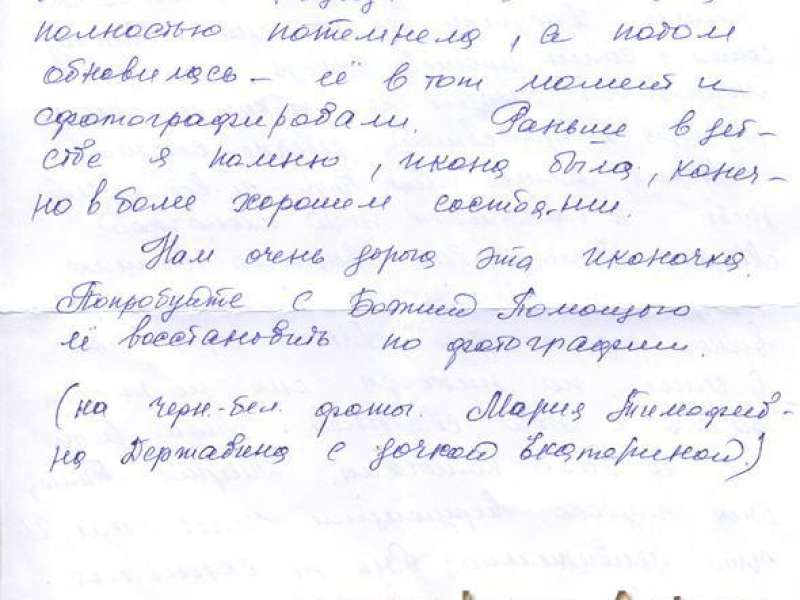 полностью потемнела, а потом
обновилась – её в тот момент и
сфотографировали. Раньше в дет-
стве я помню, икона была, конеч-
но в более хорошем состоянии.
Нам очень дорога эта иконочка.
Попробуйте с Божией Помощью
её восстановить по фотографии.
(на черн.-бел. фоты. Мария Тимофеев-
на Державина с дочкой Екатериной.)